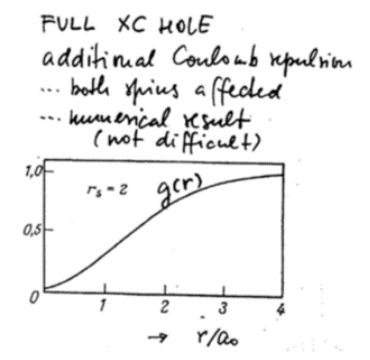 FULL XC HOLE
additional Coulomb repulsion
... both spins affected
... numerical result
(not difficult)
1,0
rₛ = 2
g(r)
0,5
0
1
2
3
4
→ r/a₀